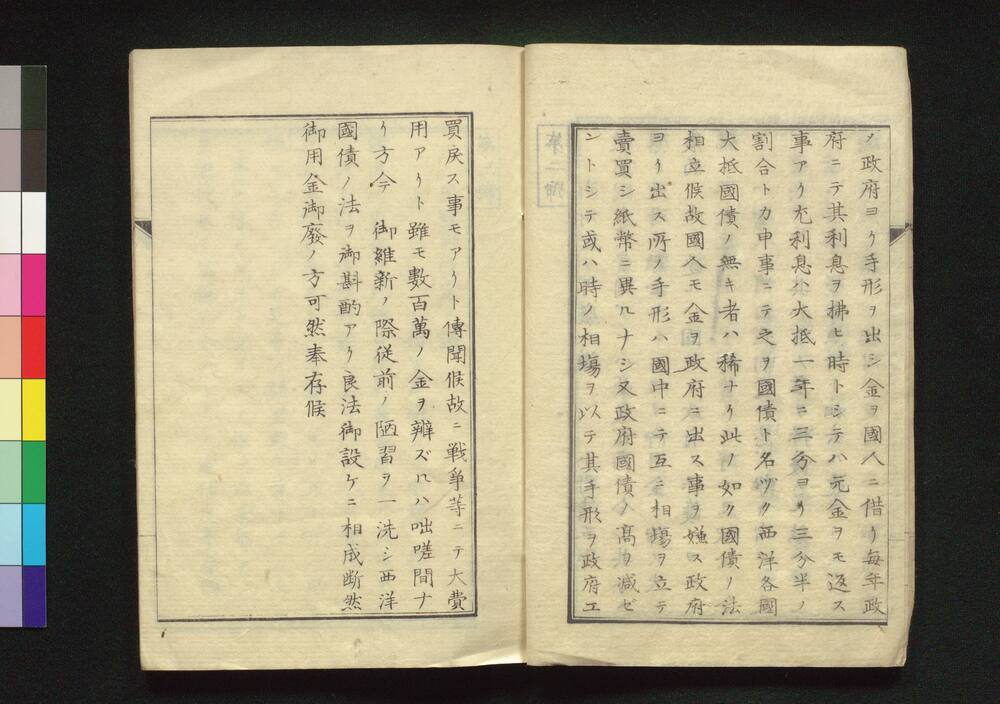 ノ政府ヨリ手形ヲ出シ金ヲ國人ニ借リ毎年政
府ニテ其利息ヲ拂ヒ時トシテハ元金ヲモ返ス
事アリ尤利息ハ大抵一年ニ三分ヨリ三分半ノ
割合トカ申事ニテ之ヲ國債ト名ヅク西洋各國
大抵國債ノ無キ者ハ稀ナリ此ノ如ク國債ノ法
相立候故國人モ金ヲ政府ニ出ス事ヲ嫌ス政府
ヨリ出ス所ノ手形ハ國中ニテ互ニ相塲ヲ立テ
賣買シ紙幣ニ異ルナシ又政府國債ノ高ヲ減ゼ
ントシテ或ハ時ノ相塲ヲ以テ其手形ヲ政府エ
買戻ス事モアリト傳聞候故ニ戦爭等ニテ大費
用アリト雖モ數百萬ノ金ヲ辨ズルハ咄嗟間ナ
リ方今 御維新ノ際従前ノ陋習ヲ一洗シ西洋
國債ノ法ヲ御斟酌アリ良法御設ケニ相成断然
御用金御廢ノ方可然奉存候